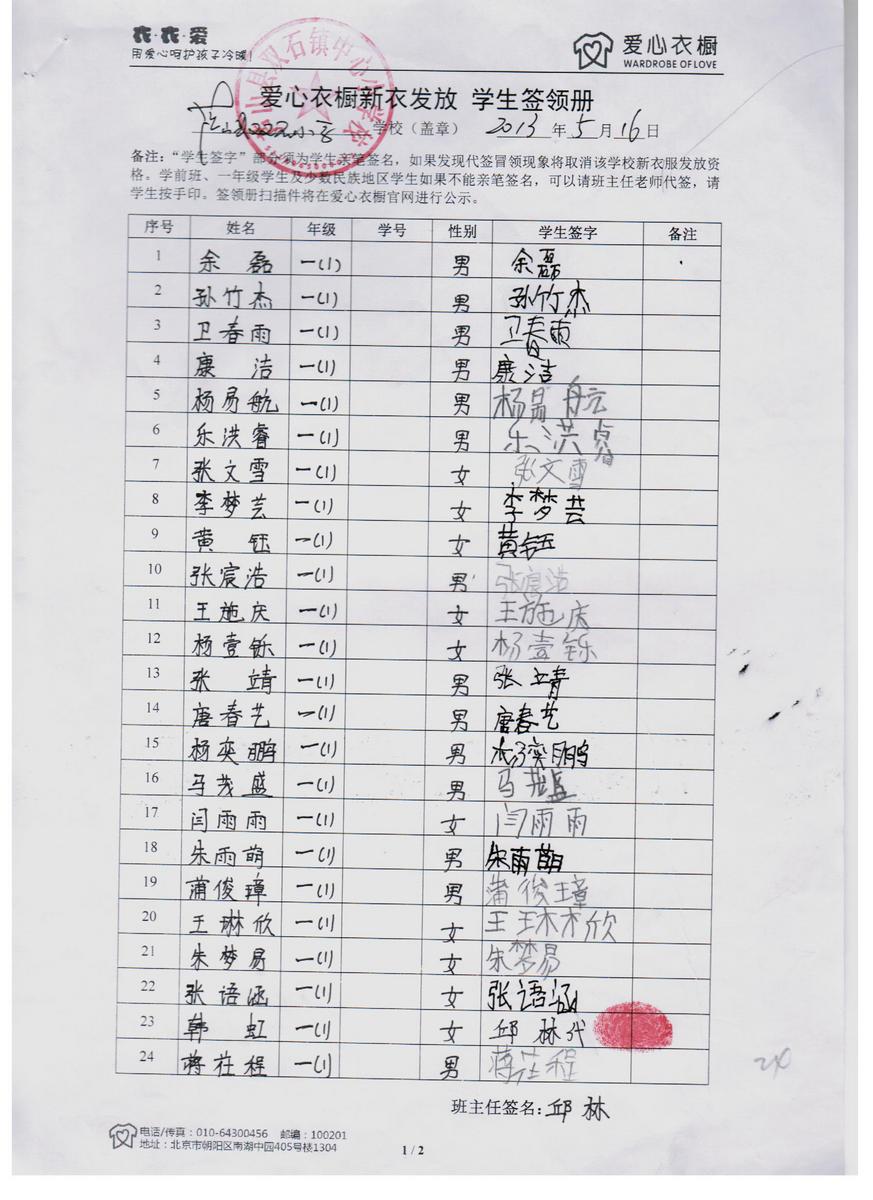 衣·衣·爱
用爱心呵护孩子冷暖!
爱心衣橱
WARDROBE OF LOVE
山县双石镇中心小学校
爱心衣橱新衣发放 学生签领册
学校（盖章） 2013 年 5 月 16 日
备注：“学生签字”部分须为学生亲笔签名，如果发现代签冒领现象将取消该学校新衣服发放资
格。学前班、一年级学生及少数民族地区学生如果不能亲笔签名，可以请班主任老师代签，请
学生按手印。签领册扫描件将在爱心衣橱官网进行公示。
序号 姓名 年级 学号 性别 学生签字 备注
1 余磊 一(1) 男 余磊
2 孙竹杰 一(1) 男 孙竹杰
3 卫春雨 一(1) 男 卫春雨
4 康洁 一(1) 男 康洁
5 杨易航 一(1) 男 杨易航
6 乐洪睿 一(1) 男 乐洪睿
7 张文雪 一(1) 女 张文雪
8 李梦芸 一(1) 女 李梦芸
9 黄钰 一(1) 女 黄钰
10 张宸浩 一(1) 男 张宸浩
11 王施庆 一(1) 女 王施庆
12 杨壹铄 一(1) 女 杨壹铄
13 张靖 一(1) 男 张靖
14 唐春艺 一(1) 男 唐春艺
15 杨奕鹏 一(1) 男 杨奕鹏
16 马茂盛 一(1) 男 马茂盛
17 闫雨雨 一(1) 女 闫雨雨
18 朱雨萌 一(1) 男 朱雨萌
19 蒲俊璋 一(1) 男 蒲俊璋
20 王琳欣 一(1) 女 王琳欣
21 朱梦易 一(1) 女 朱梦易
22 张语涵 一(1) 女 张语涵
23 韩虹 一(1) 女 邱林代
24 蒋茌程 一(1) 男 蒋茌程
班主任签名：邱林
电话/传真：010-64300456 邮编：100201
地址：北京市朝阳区南湖中园405号楼1304
1 / 2